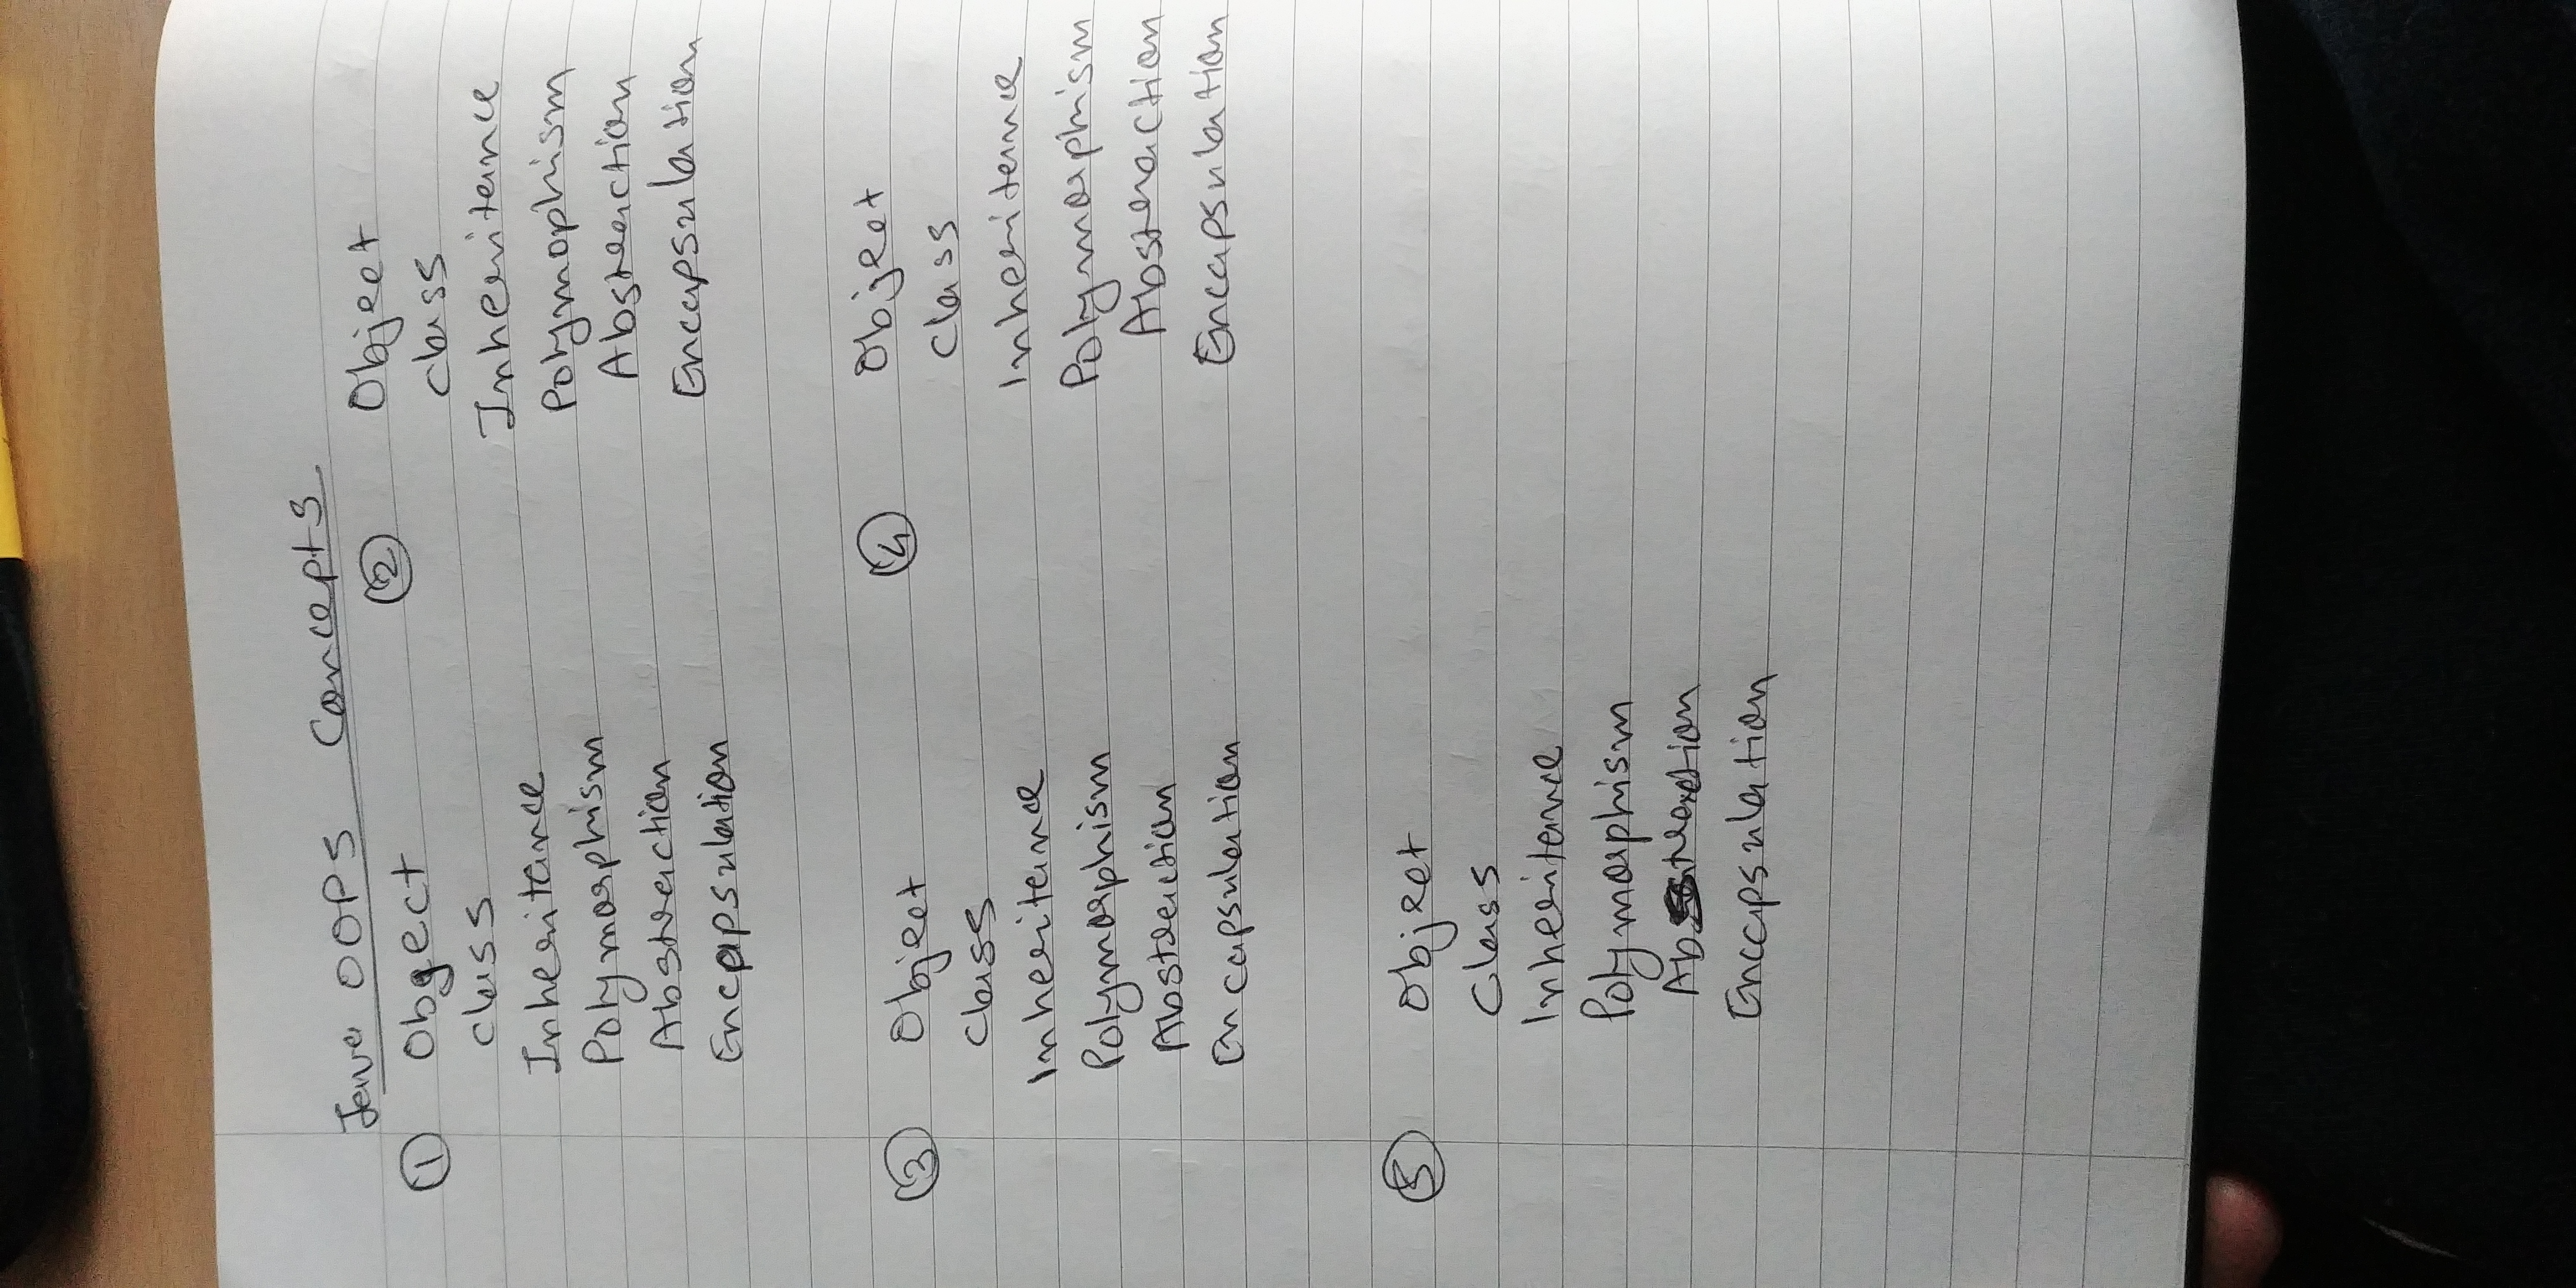 Java OOPS Concepts
① Obgect
class
Inheritance
Polymorphism
Abstraction
Encapsulation
② Object
class
Inheritance
Polymophism
Abstraction
Encapsulation
③ Object
class
Inheritance
Polymorphism
Abstraction
Encapsulation
④ Object
Class
Inheritance
Polymorphism
Abstraction
Encapsulation
⑤ Object
Class
Inheritance
Polymorphism
Abstraction
Encapsulation